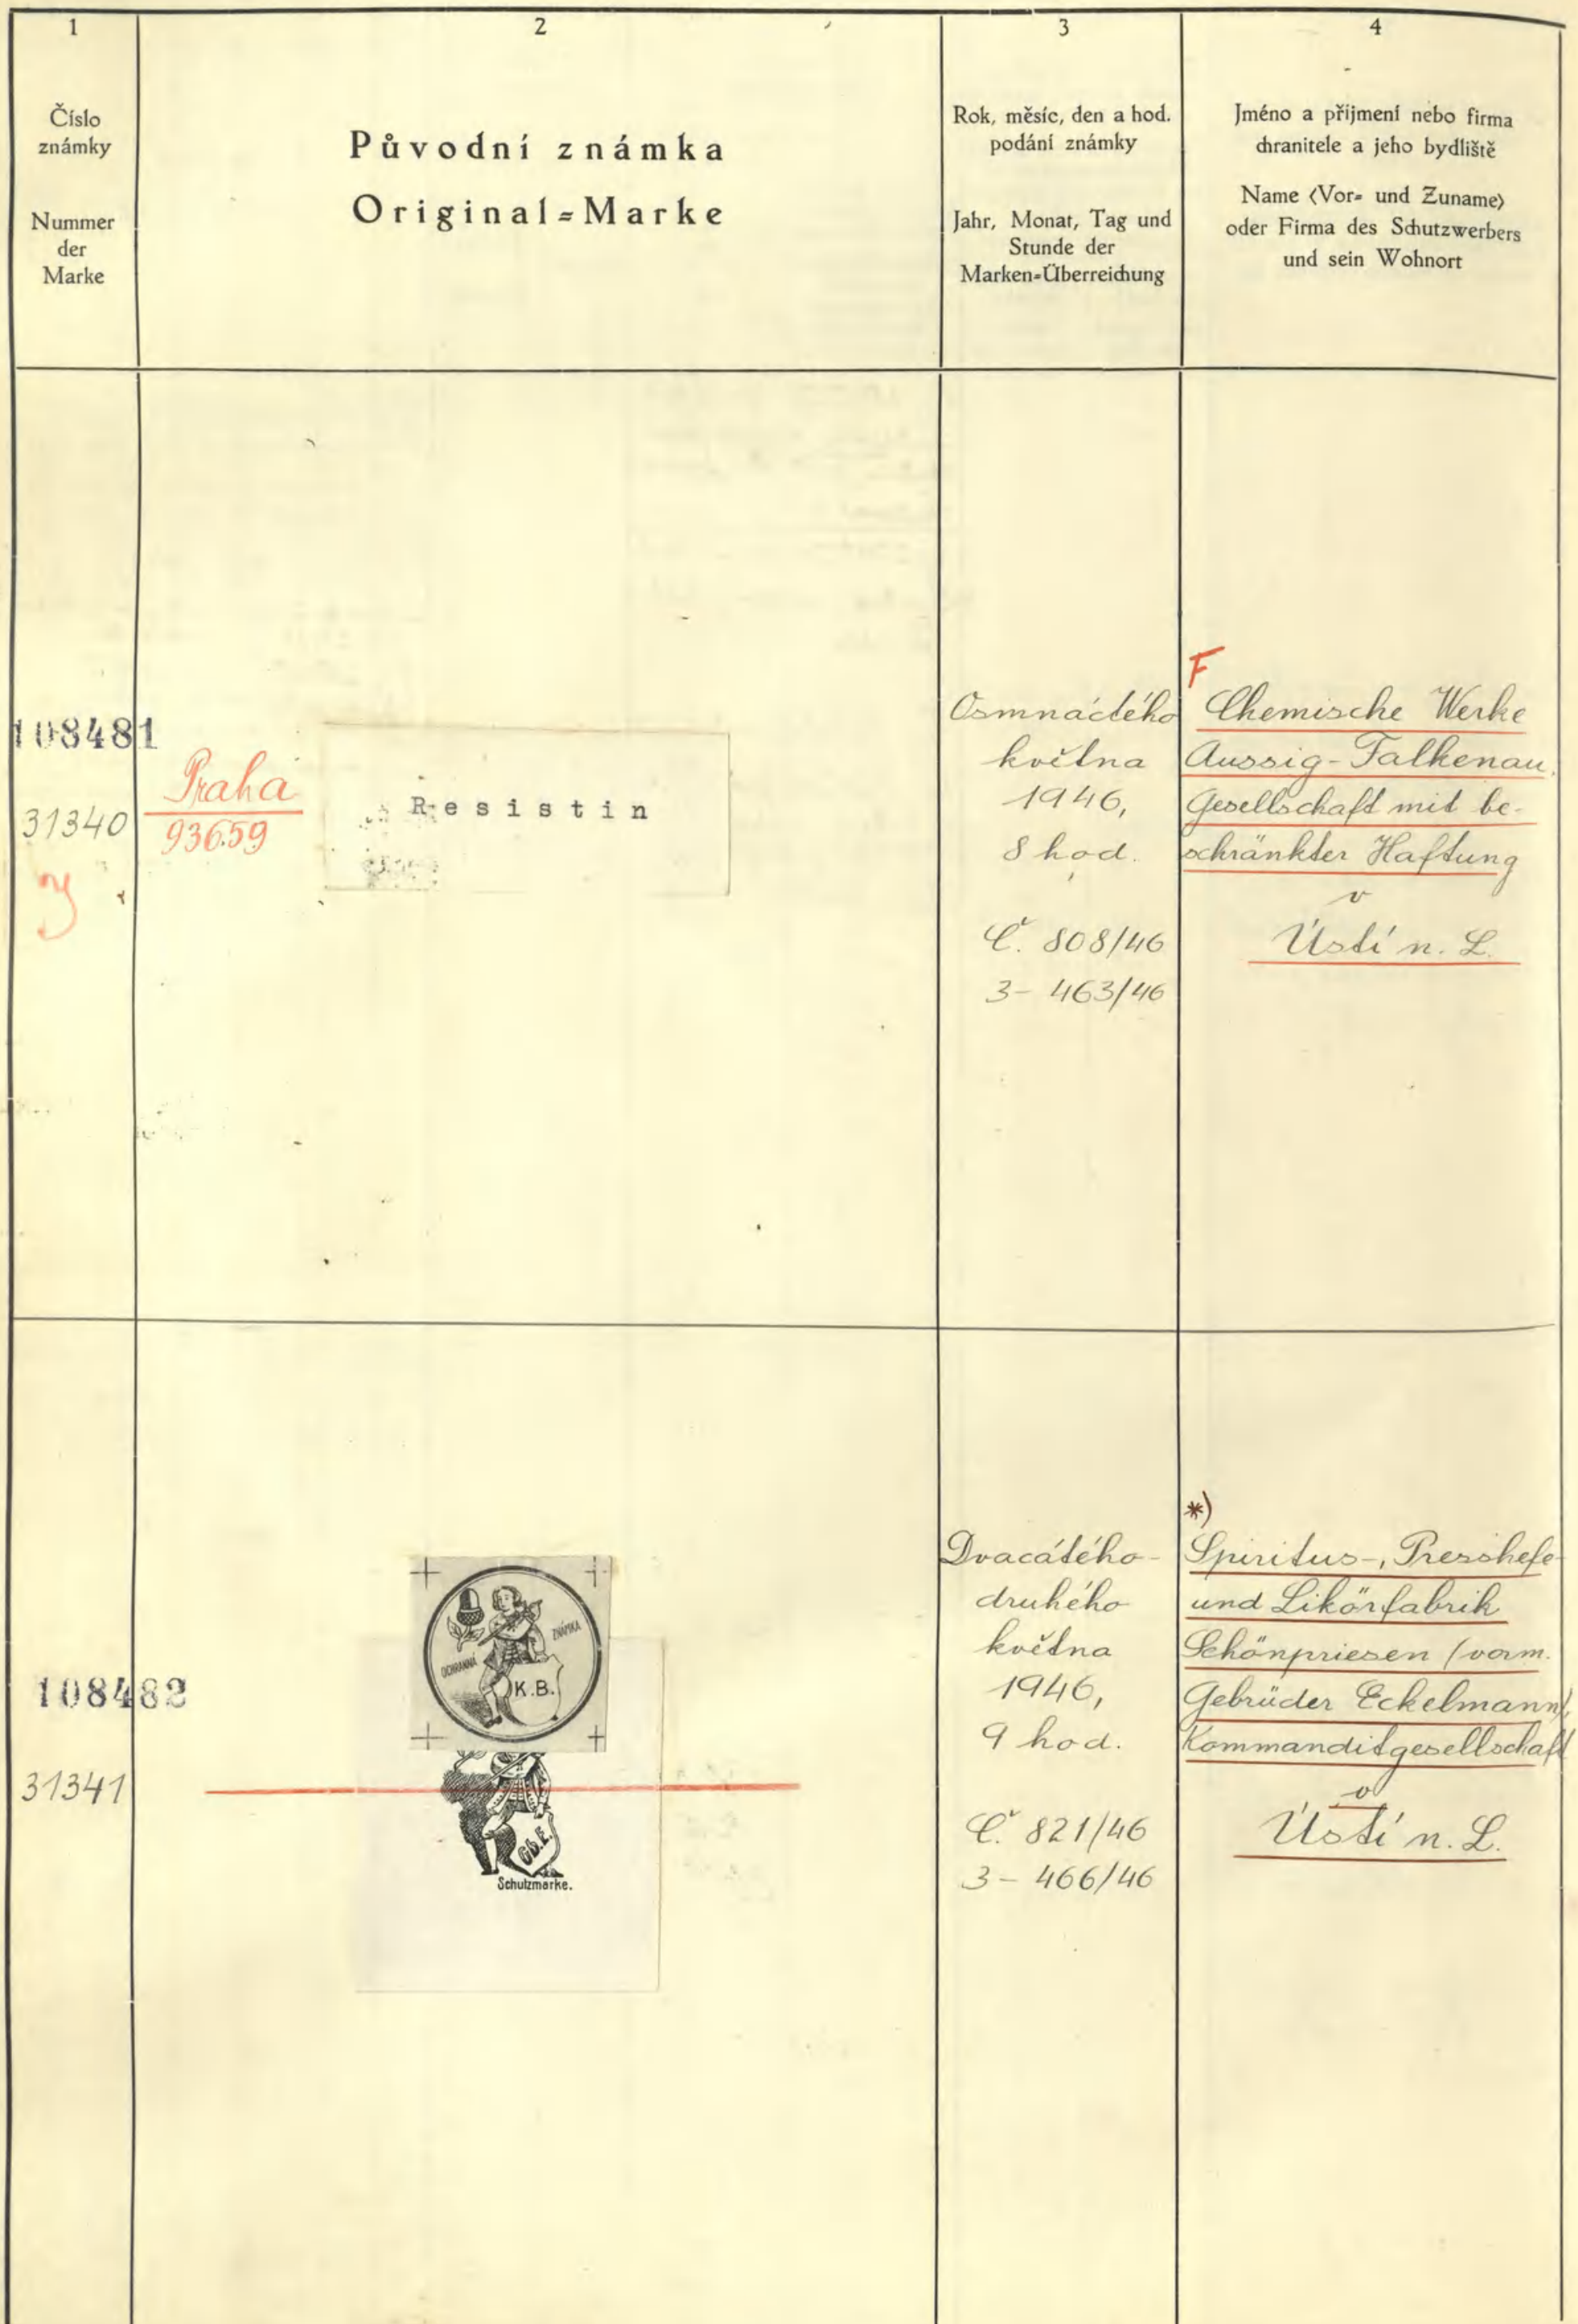 1
2
3
4
Číslo
známky
Nummer
der
Marke
Původní známka
Original=Marke
Rok, měsíc, den a hod.
podání známky
Jahr, Monat, Tag und
Stunde der
Marken=Überreichung
Jméno a příjmení nebo firma
chranitele a jeho bydliště
Name (Vor= und Zuname)
oder Firma des Schutzwerbers
und sein Wohnort
108481
31340
Praha
93659
Resistin
Osmnáctého
května
1946,
8 hod.
Č. 808/46
3- 463/46
F
Chemische Werke
Aussig-Falkenau,
Gesellschaft mit be-
schränkter Haftung
v
Ústí n. L.
108482
31341
OCHRANNÁ
ZNÁMKA
K.B.
Gb.E.
Schutzmarke.
Dvacátého-
druhého
května
1946,
9 hod.
Č. 821/46
3- 466/46
*)
Spiritus-, Presshefe-
und Likörfabrik
Schönpriesen (vorm.
Gebrüder Eckelmann),
Kommanditgesellschaft
v
Ústí n. L.